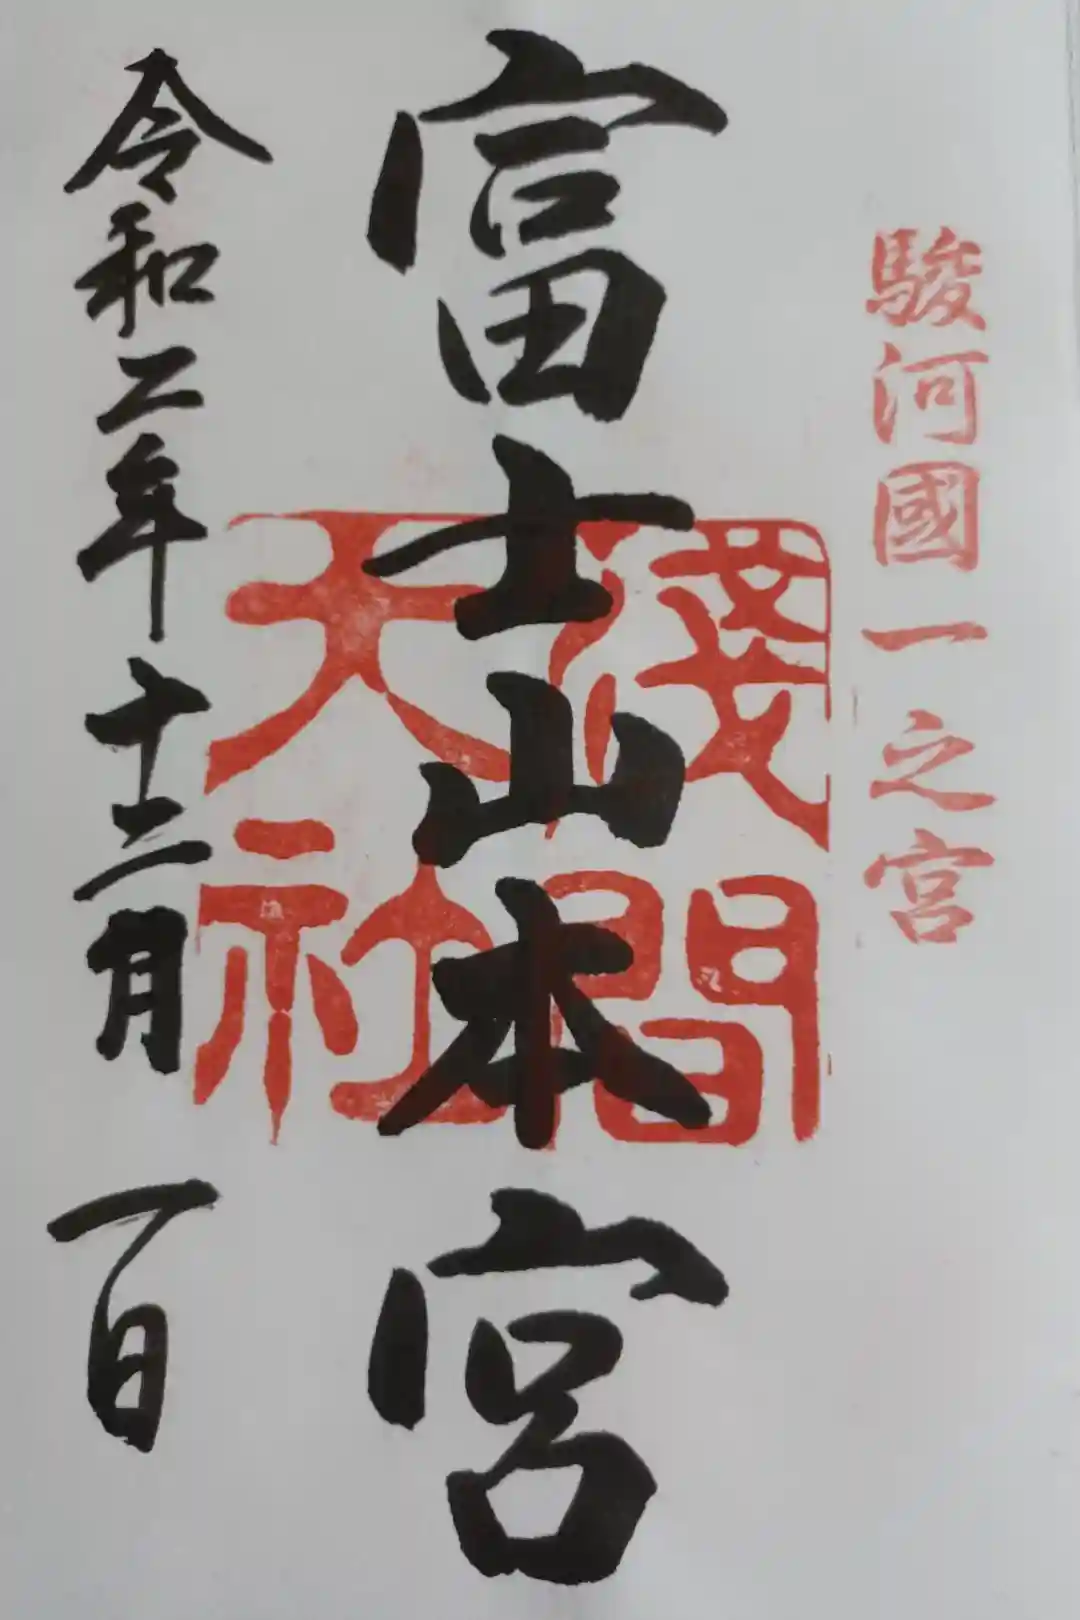 駿河國一之宮
富士山本宮
淺間
大社
令和二年十二月一日